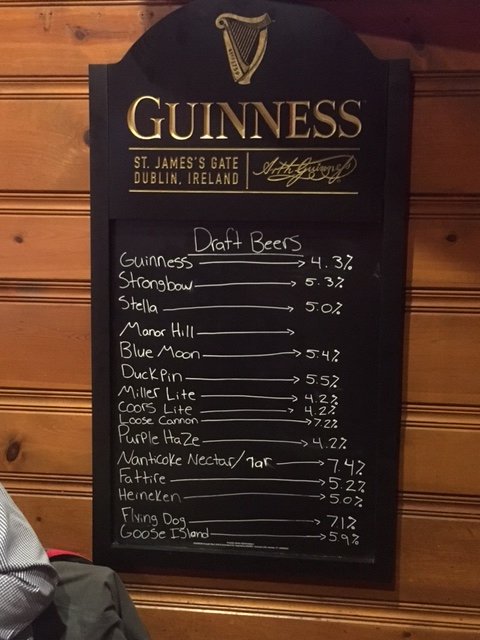 GUINNESS
ST. JAMES'S GATE
DUBLIN, IRELAND
Arth Guinness
Draft Beers
Guinness → 4.3%
Strongbow → 5.3%
Stella → 5.0%
Manor Hill →
Blue Moon → 5.4%
Duckpin → 5.5%
Miller Lite → 4.2%
Coors Lite → 4.2%
Loose Cannon → 7.2%
Purple Haze → 4.2%
Nanticoke Nectar/ → 7.4%
Fattire → 5.2%
Heineken → 5.0%
Flying Dog → 7.1%
Goose Island → 5.9%